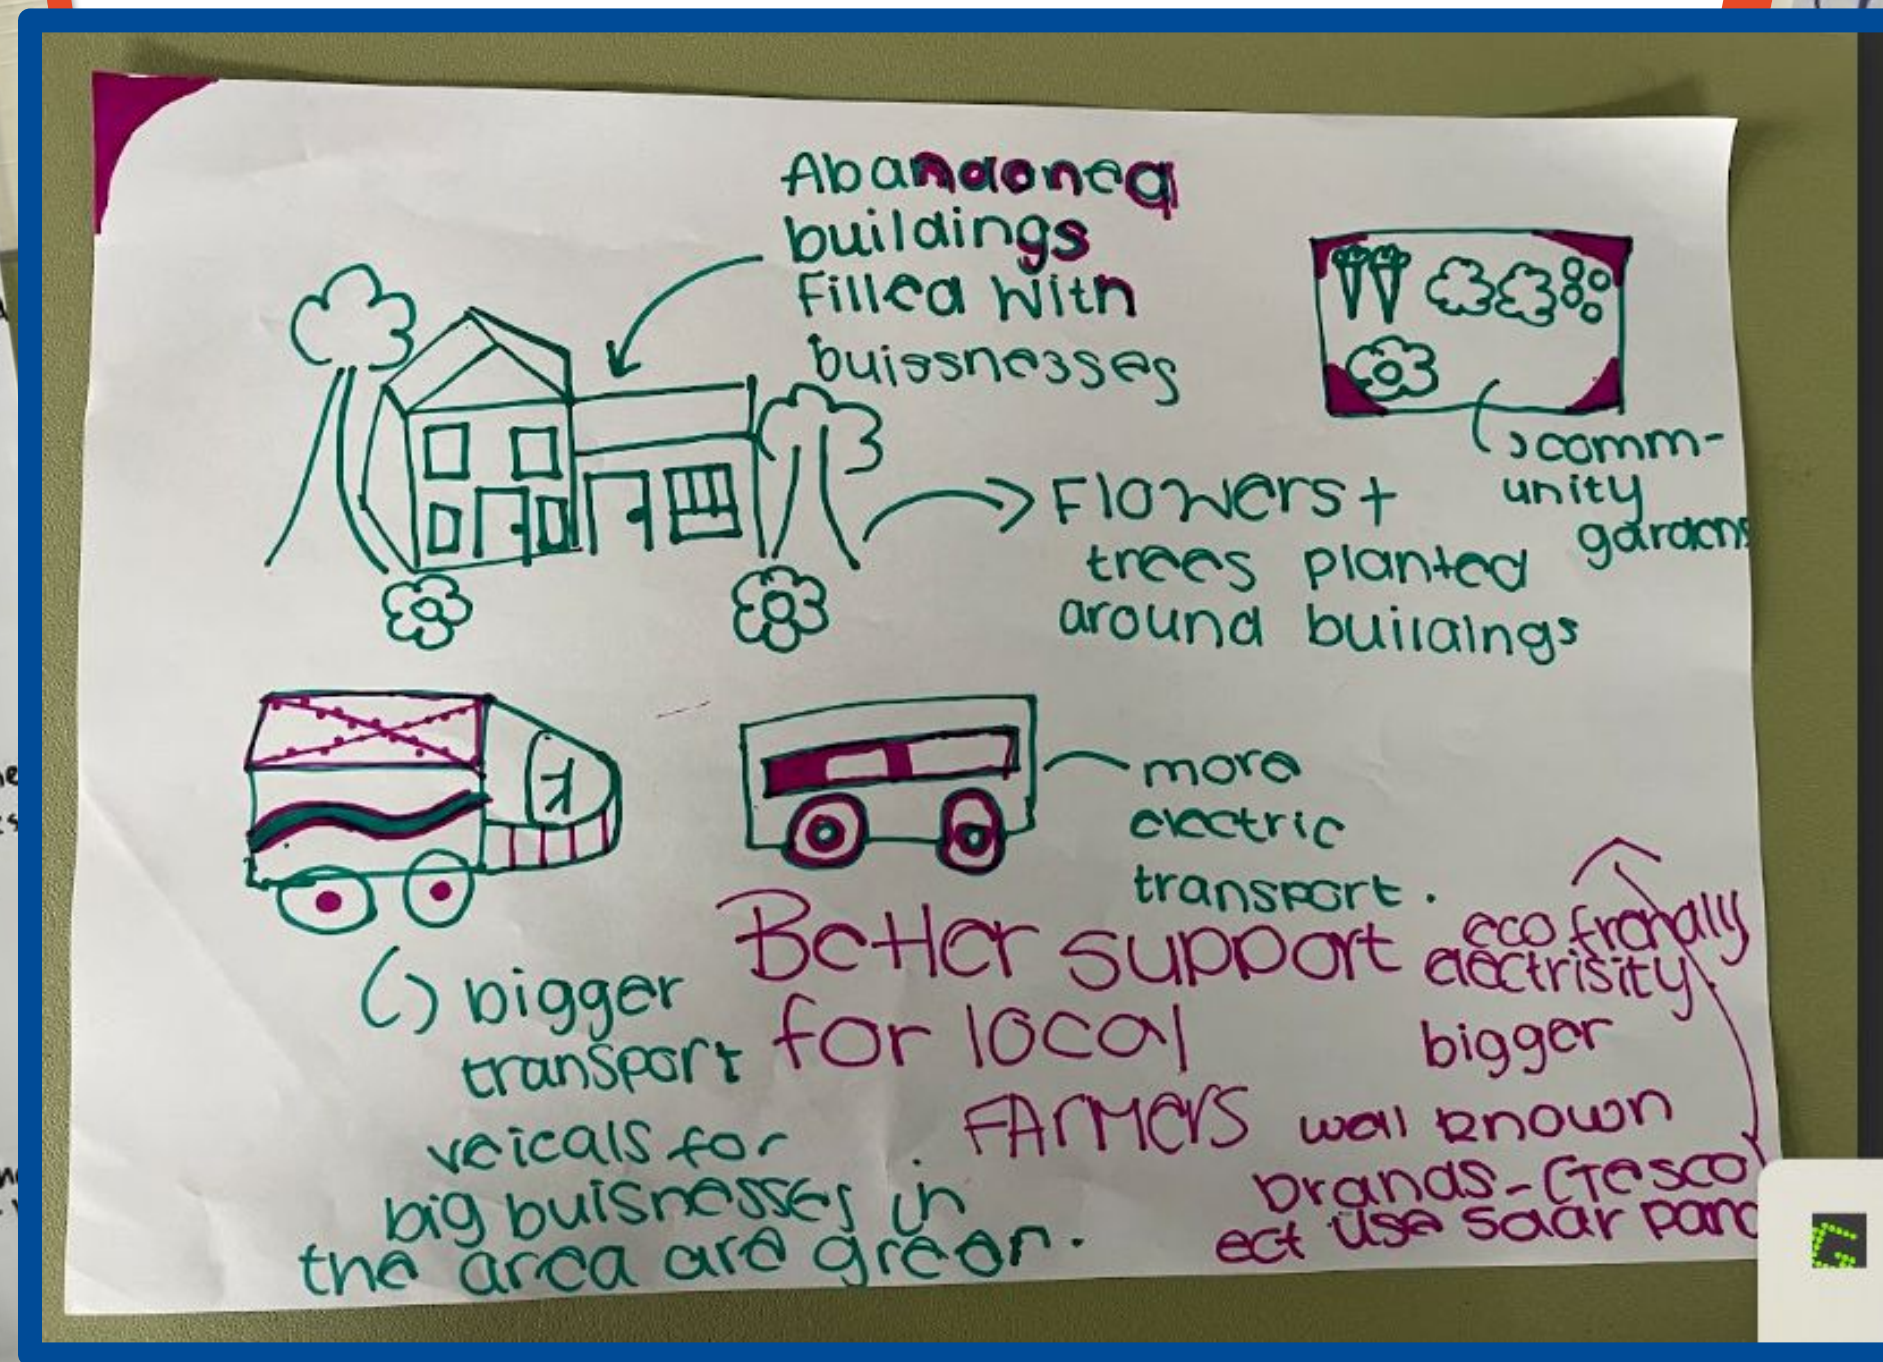 Abandoned
buildings
Filled with
buissnesses
comm-
unity
gardens
Flowers +
trees planted
around buildings
more
electric
transport.
bigger
transport
veicals for
big buisnesses in
the area are green.
Better support
for local
FArMers
eco frendally
electrisity
bigger
well known
brands - (Tesco
ect use solar pane